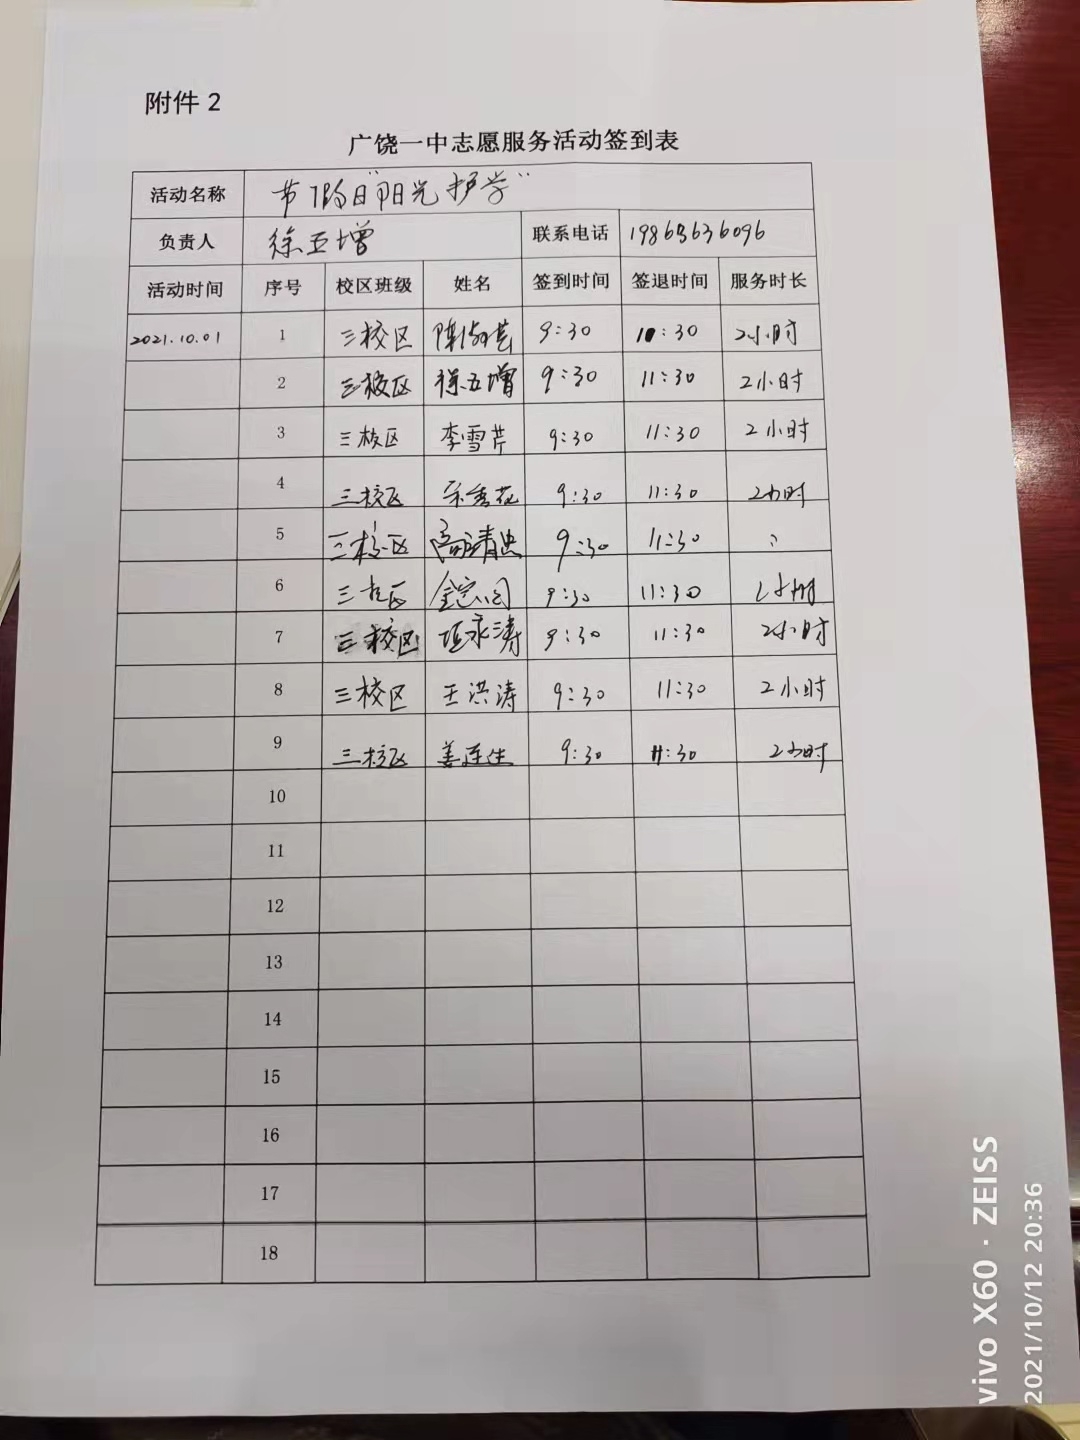 附件 2
广饶一中志愿服务活动签到表
活动名称 节假日"阳光护学"
负责人 徐五增 联系电话
活动时间 序号 校区班级 姓名 签到时间 签退时间 服务时长
2021.10.01 1 三校区 9:30 :30 2小时
2 三校区 徐五增 9:30 11:30 2小时
3 三校区 李雪芹 9:30 11:30 2小时
4 三校区 9:30 11:30 2小时
5 三校区 9:30 11:30
6 三校区 9:30 11:30
7 三校区 永涛 9:30 11:30 2小时
8 三校区 王洪涛 9:30 11:30 2小时
9 三校区 姜连生 9:30 11:30 2小时
10
11
12
13
14
15
16
17
18
vivo X60 · ZEISS
2021/10/12 20:36